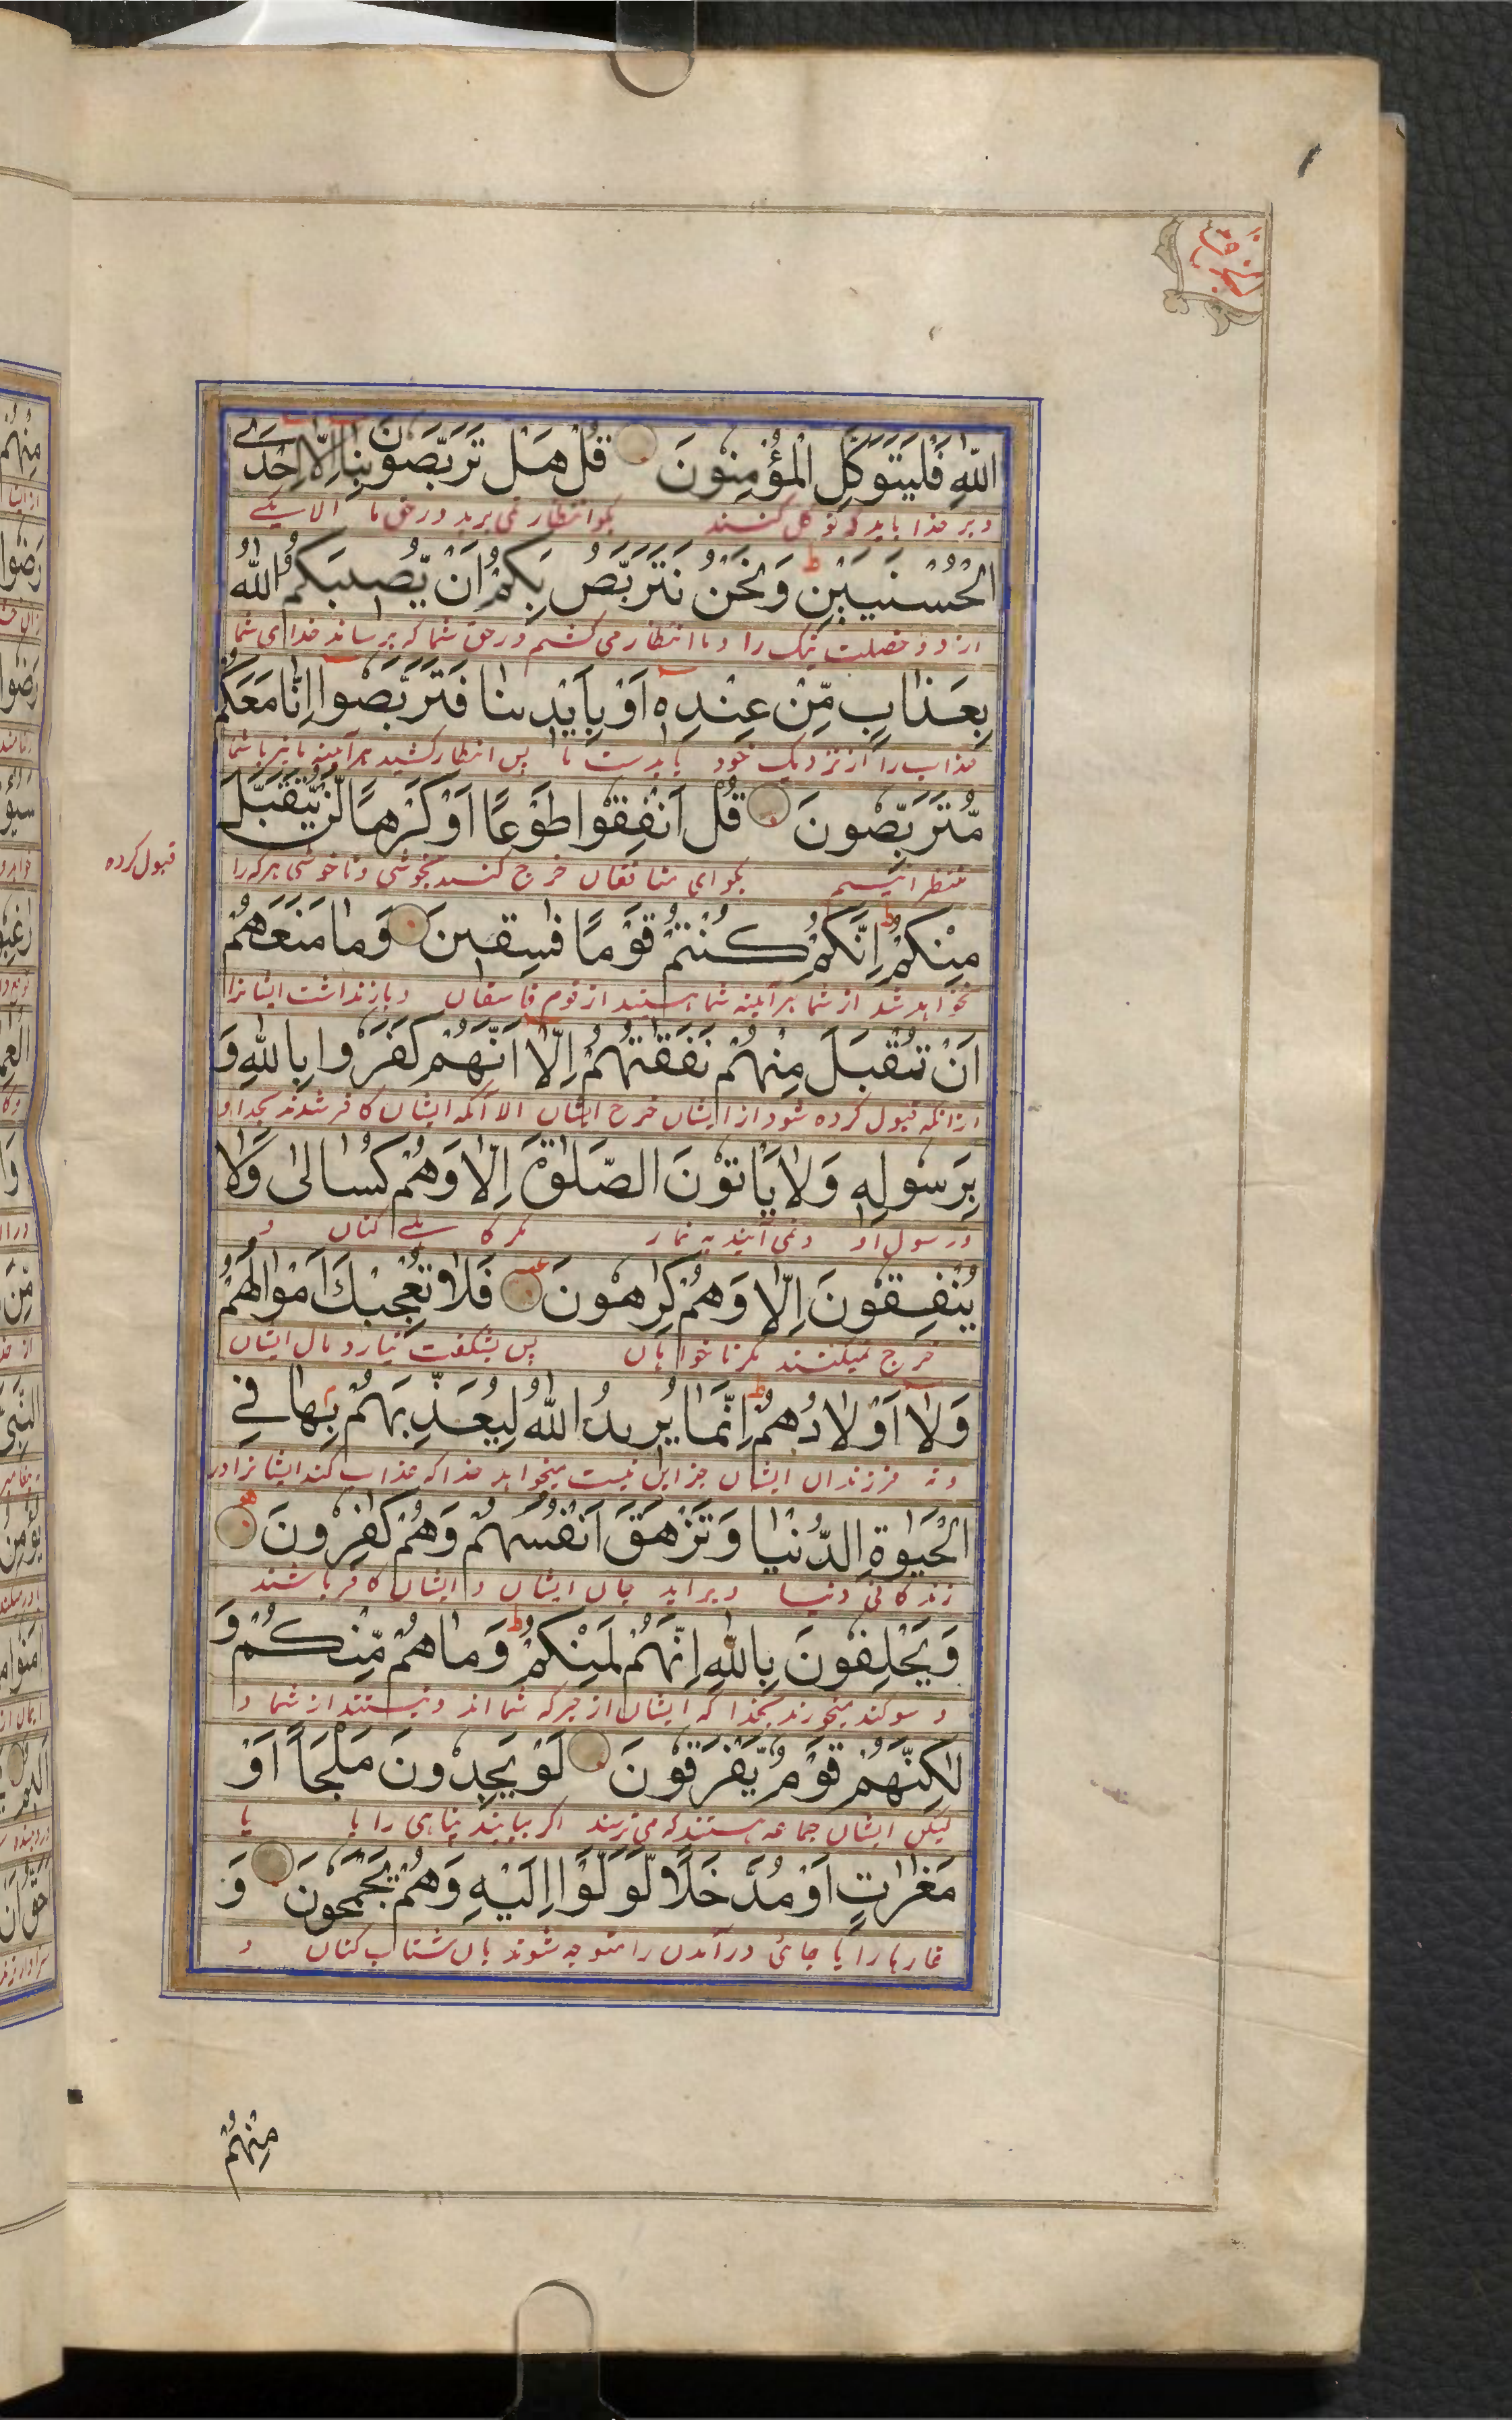 اللّٰهِ فَلْيَتَوَكَّلِ الْمُؤْمِنُونَ قُلْ هَلْ تَرَبَّصُونَ بِنَا اِلَّا اِحْدَى
و بر خدا باید که توکل کنند بگو انتظار نمی برید در حق ما الا یکے
الْحُسْنَيَيْنِ ط وَنَحْنُ نَتَرَبَّصُ بِكُمْ اَنْ يُّصِيْبَكُمُ اللّٰهُ
از دو خصلت نیک را و ما انتظار می کشیم در حق شما که برساند خدای شما
بِعَذَابٍ مِّنْ عِنْدِهٖ اَوْ بِاَيْدِيْنَا فَتَرَبَّصُوا اِنَّا مَعَكُمْ
عذاب را از نزدیک خود یا بدست ما پس انتظار کشید هر آینه ما نیز با شما
مُّتَرَبِّصُونَ قُلْ اَنْفِقُوا طَوْعًا اَوْ كَرْهًا لَّنْ يُّتَقَبَّلَ
منتظرانیم بگو ای منافقان خرج کنید بخوشی و ناخوشی هرگز را
قبول کرده
مِنْكُمْ ط اِنَّكُمْ كُنْتُمْ قَوْمًا فٰسِقِينَ وَمَا مَنَعَهُمْ
نخواهد شد از شما هر آینه شما هستید از قوم فاسقان و باز نداشت ایشانرا
اَنْ تُقْبَلَ مِنْهُمْ نَفَقٰتُهُمْ اِلَّا اَنَّهُمْ كَفَرُوا بِاللّٰهِ وَ
از آنکه قبول کرده شود از ایشان خرج ایشان الا آنکه ایشان کافر شدند بخدا و
بِرَسُولِهٖ وَلَا يَاْتُونَ الصَّلٰوةَ اِلَّا وَهُمْ كُسَالٰى وَلَا
و رسول او و نمی آیند به نماز مگر کاهلے کنان و
يُنْفِقُونَ اِلَّا وَهُمْ كٰرِهُونَ فَلَا تُعْجِبْكَ اَمْوَالُهُمْ
خرج نمیکنند مگر ناخواهان پس بشگفت نیارد مال ایشان
وَلَا اَوْلَادُهُمْ ط اِنَّمَا يُرِيدُ اللّٰهُ لِيُعَذِّبَهُمْ بِهَا فِي
و نه فرزندان ایشان جز این نیست میخواهد خدا که عذاب کند ایشانرا در
الْحَيٰوةِ الدُّنْيَا وَتَزْهَقَ اَنْفُسُهُمْ وَهُمْ كٰفِرُونَ
زندگانی دنیا و برآید جان ایشان و ایشان کافر باشند
وَيَحْلِفُونَ بِاللّٰهِ اِنَّهُمْ لَمِنْكُمْ ط وَمَا هُمْ مِّنْكُمْ وَ
و سوگند میخورند بخدا که ایشان از جرگه شما اند و نیستند از شما و
لٰكِنَّهُمْ قَوْمٌ يَّفْرَقُونَ لَوْ يَجِدُونَ مَلْجَاً اَوْ
لیکن ایشان جماعه هستند که می ترسند اگر بیابند پناهی را یا
مَغٰرٰتٍ اَوْ مُدَّخَلًا لَّوَلَّوْا اِلَيْهِ وَهُمْ يَجْمَحُونَ وَ
غارها را یا جائی درآمدن را متوجه شوند بآن شتاب کنان و
مِنْهُمْ